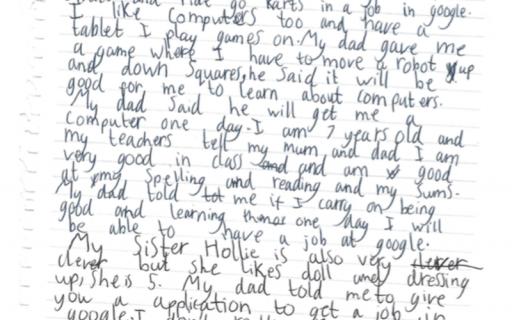 and ride go karts in a job in google.
I like computers too and have a
tablet I play games on. My dad gave me
a game where I have to move a robot up
and down squares, he said it will be
good for me to learn about computers.
My dad said he will get me a
computer one day. I am 7 years old and
my teachers tell my mum and dad I am
very good in class and and am good
at my spelling and reading and my sums.
My dad told tot me if I carry on being
good and learning one day I will
be able to have a job at google.
My Sister Hollie is also very clever
clever but she likes doll and dressing
up, she is 5. My dad told me to give
you a application to get a job in
google. I